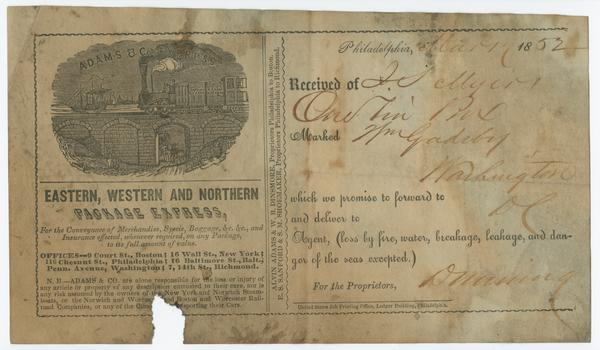 ADAMS & CO'S EXPRESS
EASTERN, WESTERN AND NORTHERN
PACKAGE EXPRESS,
For the Conveyance of Merchandize, Specie, Baggage, &c. &c., and
Insurance effected, whenever required, on any Package,
to its full amount of value.
OFFICES—9 Court St., Boston; 16 Wall St., New York;
116 Chesnut St., Philadelphia; 16 Baltimore St., Balt.,
Penn. Avenue, Washington; 7, 14th St., Richmond.
N. B.—ADAMS & CO. are alone responsible for the loss or injury of
any article or property of any description entrusted to their care, nor is
any risk assumed by the owners of the New York and Norwich Steam-
boats, or the Norwich and Worcester and Boston and Worcester Rail-
road Companies, or any of the reporting their Cars.
ALVIN ADAMS & W. B. DINSMORE, Proprietors Philadelphia to Boston.
E. S. SANFORD & S. M. SHOEMAKER, Proprietors Philadelphia to Richmond.
Philadelphia, 1852
Received of Myers
One Tin Box
Marked Wm Gadsby
Washington
which we promise to forward to
D C
and deliver to
Agent, (loss by fire, water, breakage, leakage, and dan-
ger of the seas excepted.)
For the Proprietors,
United States Job Printing Office, Ledger Building, Philadelphia.